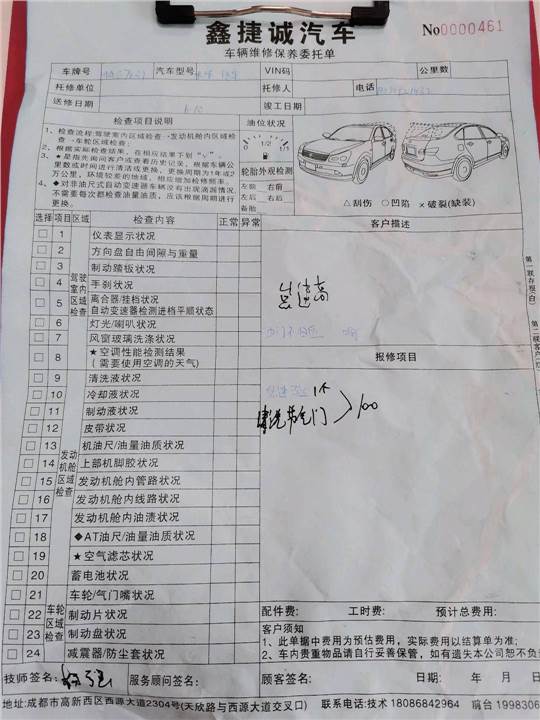 鑫捷诚汽车
No0000461
车辆维修保养委托单
车牌号 汽车型号 VIN码 公里数
托修单位 托修人 电话
送修日期 竣工日期
检查项目说明
1、检查流程:驾驶室内区域检查→发动机舱内区域检查→车轮区域检查。
2、根据实际检查结果,在相应结果下划“√”。
3、★是指先询问客户或查看历史记录,根据车辆公里数或时间进行清洁或更换,更换周期为1年或2万公里,环境较差的地域,相应增加检修频率。
4、◆对非油尺式自动变速器车辆没有出现滴漏情况,不需要每次都检查油量油质,应该根据周期进行更换。
油位状况
0 1/2 1/1
轮胎外观检测
左前 右前
左后 右后
备胎
△刮伤 ○凹陷 ×破裂(缺装)
选择 项目 区域 检查内容 正常 异常
客户描述
驾驶室内区域检查
□ 1 仪表显示状况
□ 2 方向盘自由间隙与重量
□ 3 制动踏板状况
□ 4 手刹状况
□ 5 离合器/挂档状况
自动变速器检测进档平顺状态
□ 6 灯光/喇叭状况
□ 7 风窗玻璃洗涤状况
□ 8 ★空调性能检测结果
(需要使用空调的天气)
怠速高
报修项目
发动机舱区域检查
□ 9 清洗液状况
□ 10 冷却液状况
□ 11 制动液状况
□ 12 皮带状况
□ 13 机油尺/油量油质状况
□ 14 上部机脚胶状况
□ 15 发动机舱内管路状况
□ 16 发动机舱内线路状况
□ 17 发动机舱内油渍状况
□ 18 ◆AT油尺/油量油质状况
□ 19 ★空气滤芯状况
□ 20 蓄电池状况
清洗节气门 100
车轮区域检查
□ 21 车轮/气门嘴状况
□ 22 制动片状况
□ 23 制动盘状况
□ 24 减震器/防尘套状况
配件费: 工时费: 预计总费用:
客户须知
1、此单据中费用为预估费用,实际费用以结算单为准;
2、车内贵重物品请自行妥善保管,如有遗失本公司恕不负
技师签名: 服务顾问签名: 客户签名: 日期: 年 月 日
地址:成都市高新西区西源大道2304号(天欣路与西源大道交叉口) 联系电话:技术18086842964 前台 1998306
第一联存根(白)